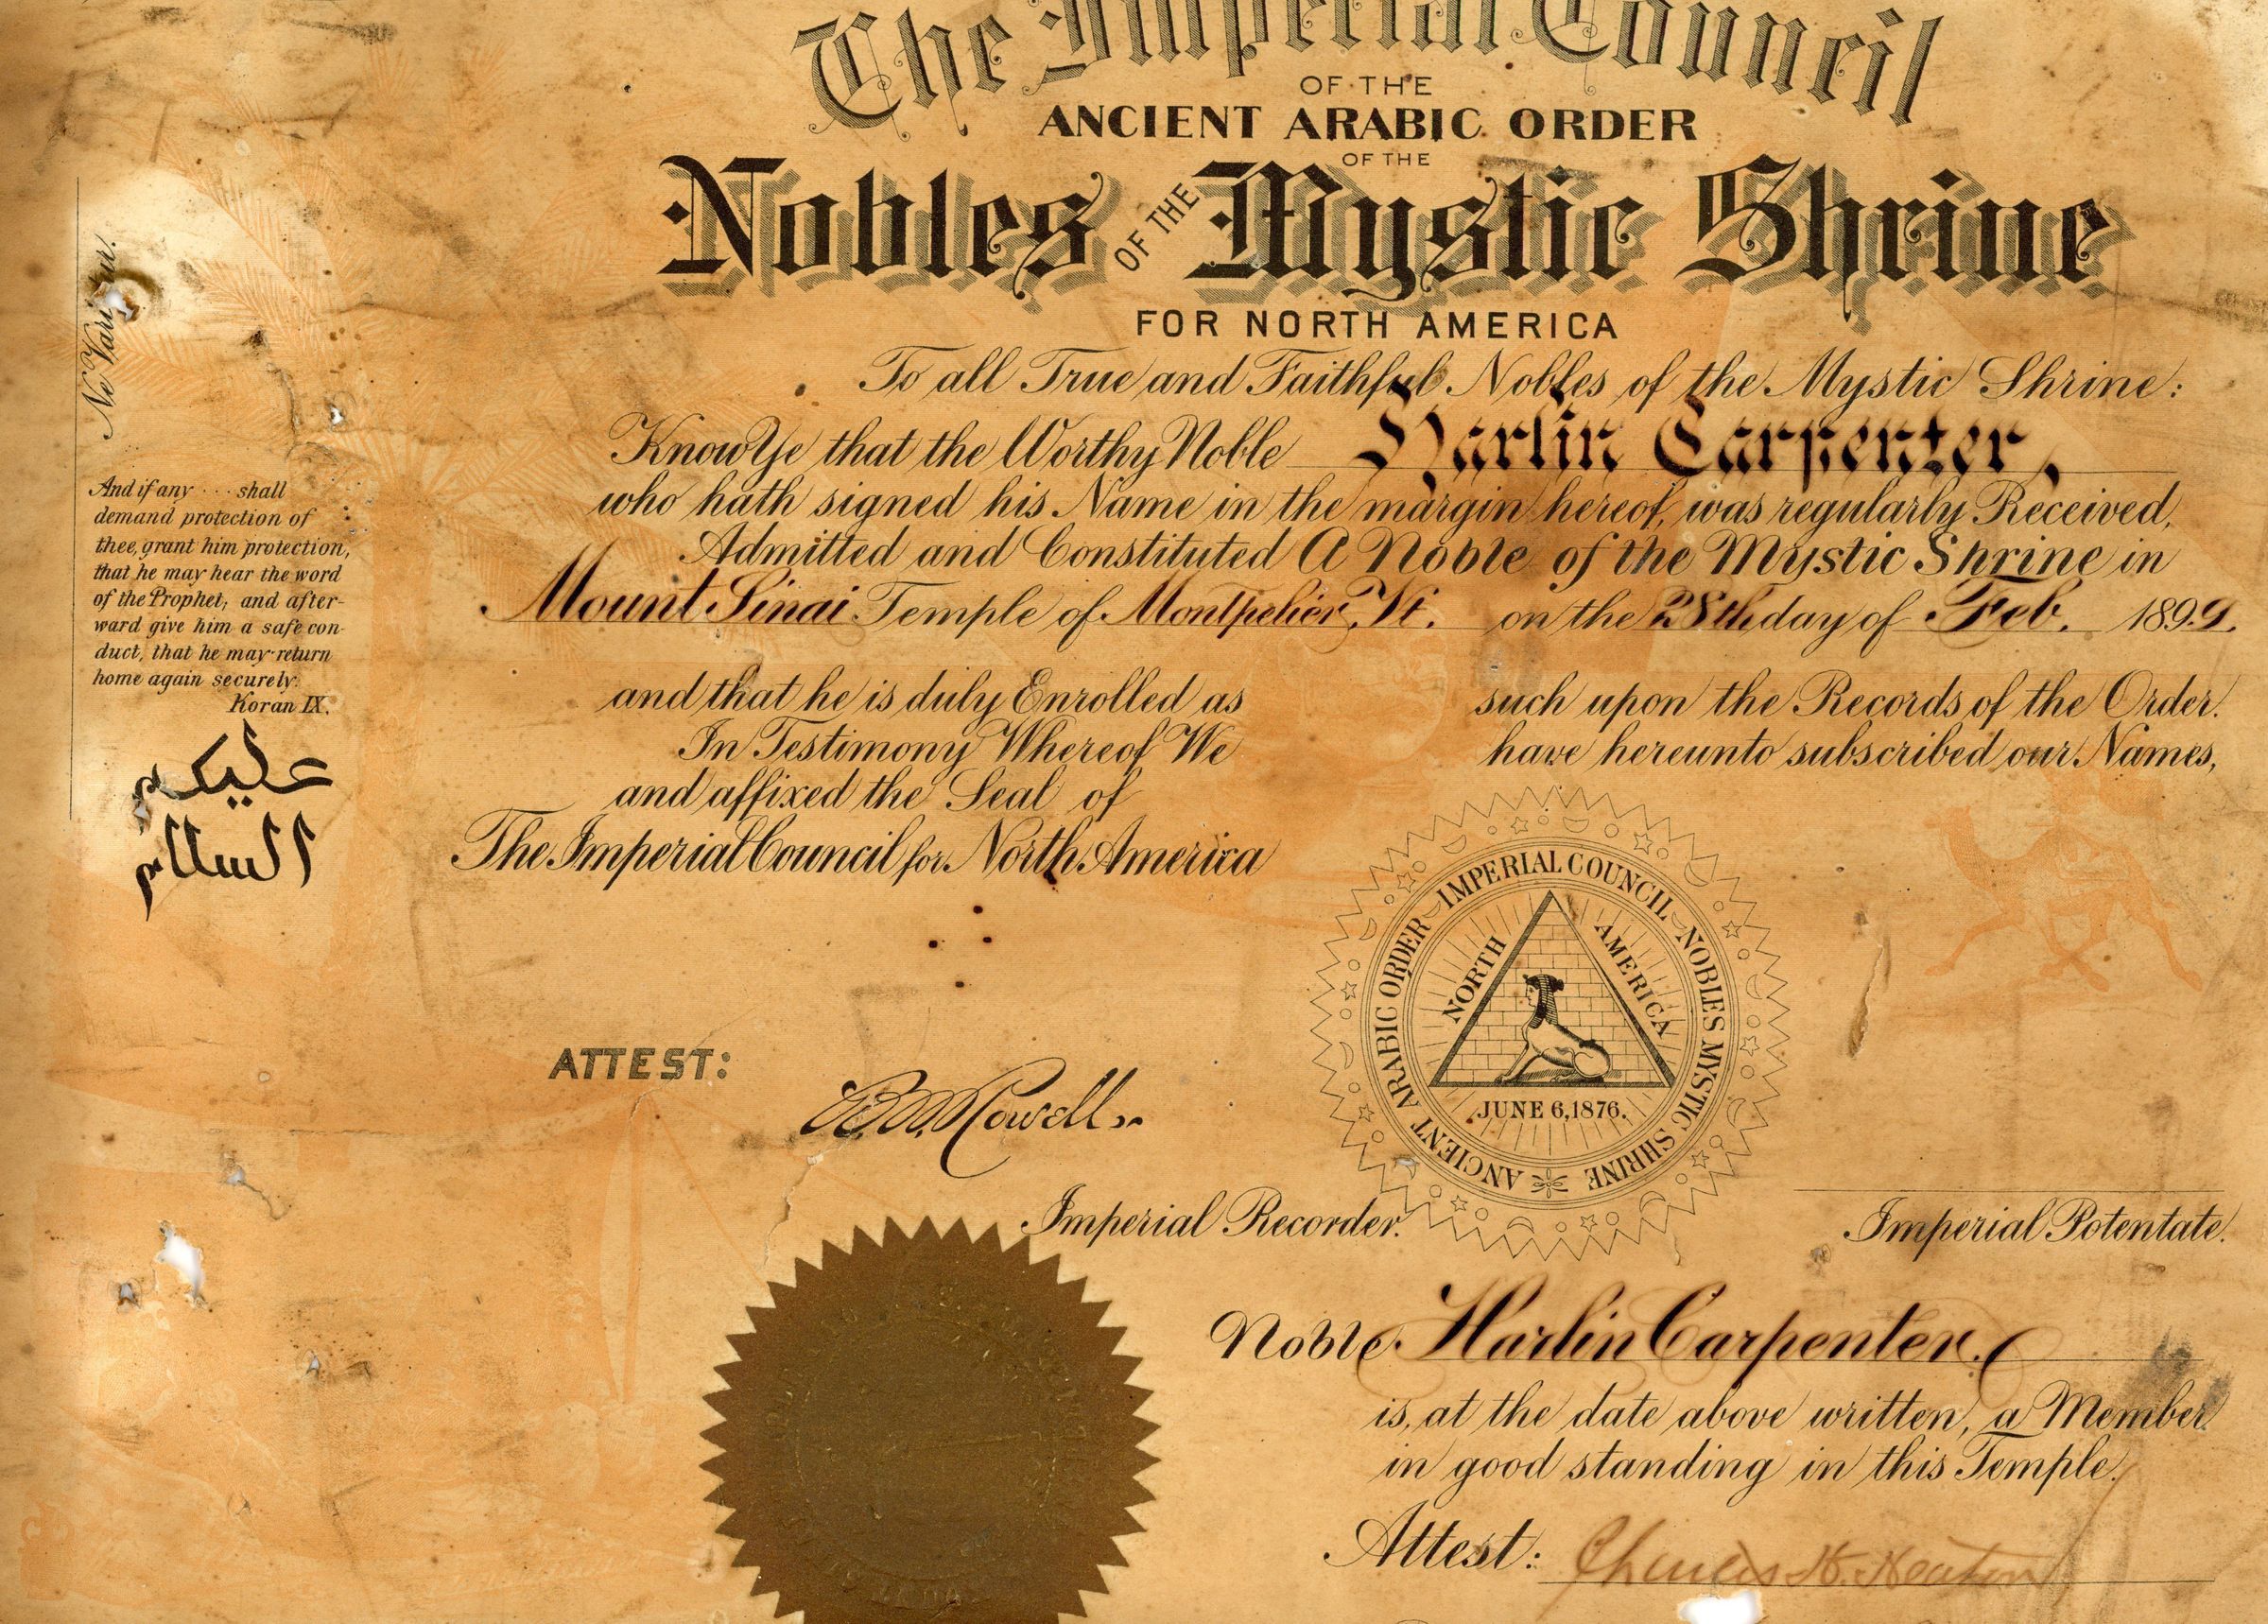 The Imperial Council
OF THE
ANCIENT ARABIC ORDER
OF THE
Nobles OF THE Mystic Shrine
FOR NORTH AMERICA
To all True and Faithful Nobles of the Mystic Shrine:
Know Ye that the Worthy Noble Harlin Carpenter,
who hath signed his Name in the margin hereof, was regularly Received,
Admitted and Constituted A Noble of the Mystic Shrine in
Mount Sinai Temple of Montpelier, Vt. on the 28th day of Feb. 1899.
and that he is duly Enrolled as such upon the Records of the Order.
In Testimony Whereof We have hereunto subscribed our Names,
and affixed the Seal of
The Imperial Council for North America
Ne Varietur.
And if any ... shall
demand protection of
thee, grant him protection,
that he may hear the word
of the Prophet, and after-
ward give him a safe con-
duct, that he may return
home again securely.
Koran IX.
عليكم
السلام
ANCIENT ARABIC ORDER IMPERIAL COUNCIL NOBLES MYSTIC SHRINE
NORTH AMERICA
JUNE 6, 1876.
ATTEST:
Rowell
Imperial Recorder.
Imperial Potentate.
Noble Harlin Carpenter.
is, at the date above written, a Member
in good standing in this Temple.
Attest: Charles H. Heaton